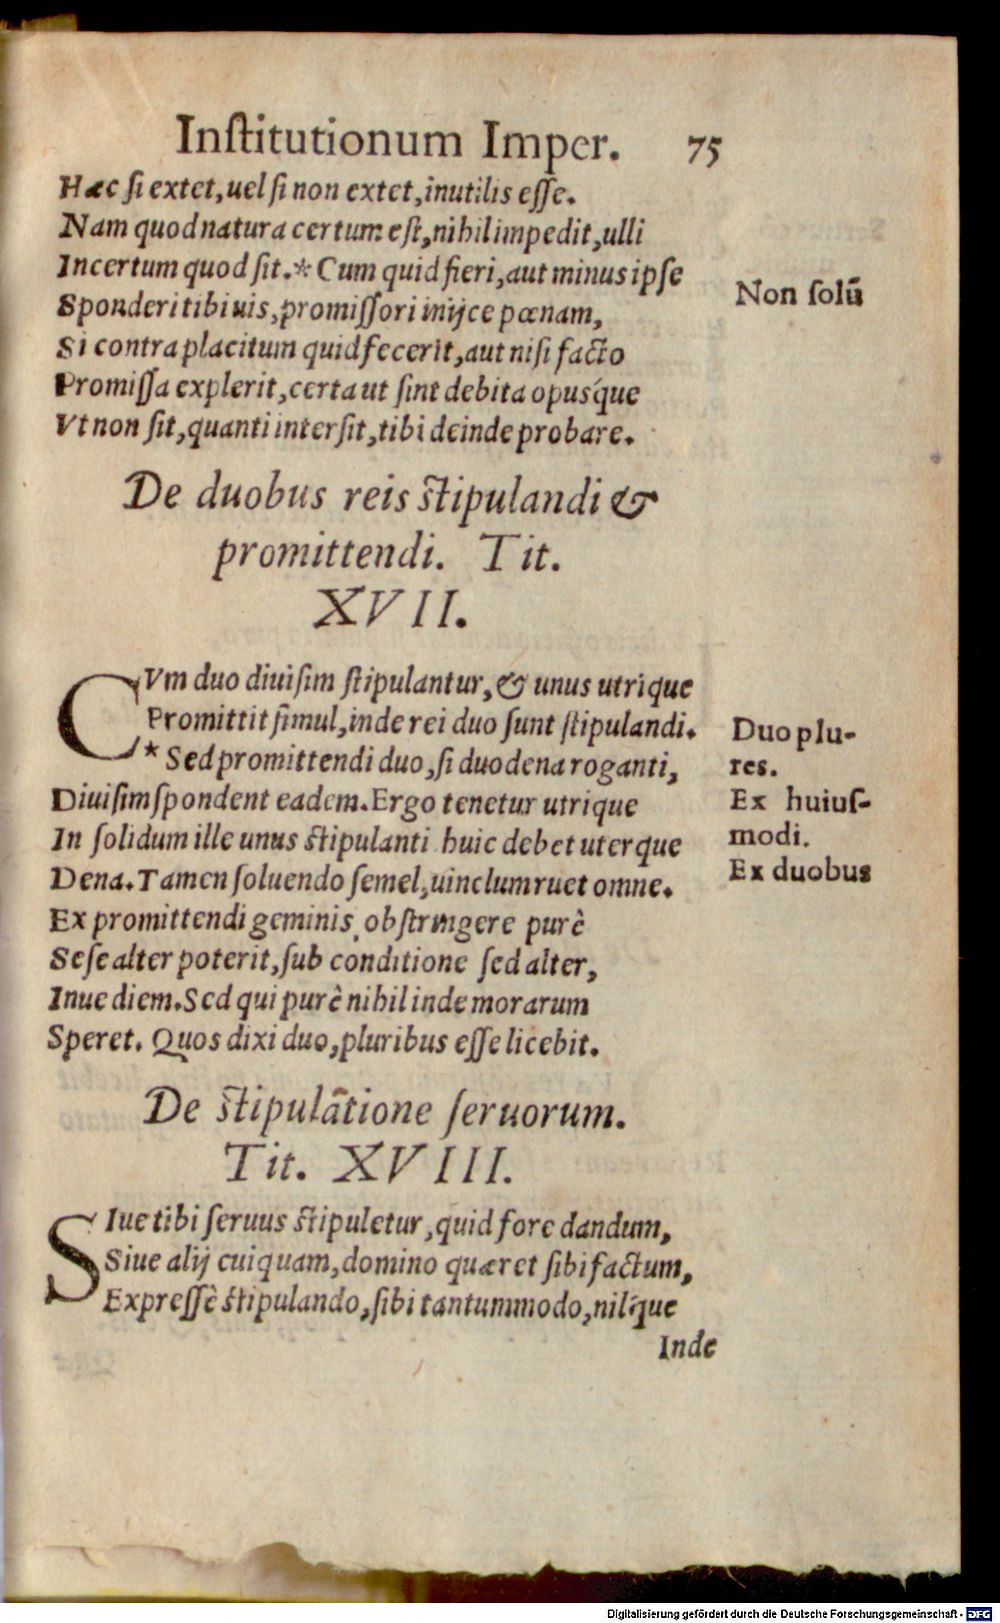 Inſtitutionum Imper. 75
Hæc ſi extet, uel ſi non extet, inutilis eſſe.
Nam quod natura certum eſt, nihil impedit, ulli
Incertum quod ſit.* Cum quid fieri, aut minus ipſe
Non ſolū
Sponderi tibi uis, promiſſori inijce pœnam,
Si contra placitum quid fecerit, aut niſi facto
Promiſſa explerit, certa ut ſint debita opusq́ue
Vt non ſit, quanti interſit, tibi deinde probare.
De duobus reis ſtipulandi &
promittendi. Tit.
XVII.
CVm duo diuiſim ſtipulantur, & unus utriq̀ue
Promittit ſimul, inde rei duo ſunt ſtipulandi.
Duo plu-
* Sed promittendi duo, ſi duo dena roganti,
res.
Diuiſim ſpondent eadem. Ergo tenetur utrique
Ex huiuſ-
In ſolidum ille unus ſtipulanti huic debet uterque
modi.
Dena. Tamen ſoluendo ſemel, uinclum ruet omne.
Ex duobus
Ex promittendi geminis obſtringere purè
Seſe alter poterit, ſub conditione ſed alter,
Inue diem. Sed qui purè nihil inde morarum
Speret. Quos dixi duo, pluribus eſſe licebit.
De ſtipulatione ſeruorum.
Tit. XVIII.
SIue tibi ſeruus ſtipuletur, quid fore dandum,
Siue alij cuiquam, domino quæret ſibi factum,
Expreſſè ſtipulando, ſibi tantummodo, nilq́ue
Inde
Digitalisierung gefördert durch die Deutsche Forschungsgemeinschaft - DFG